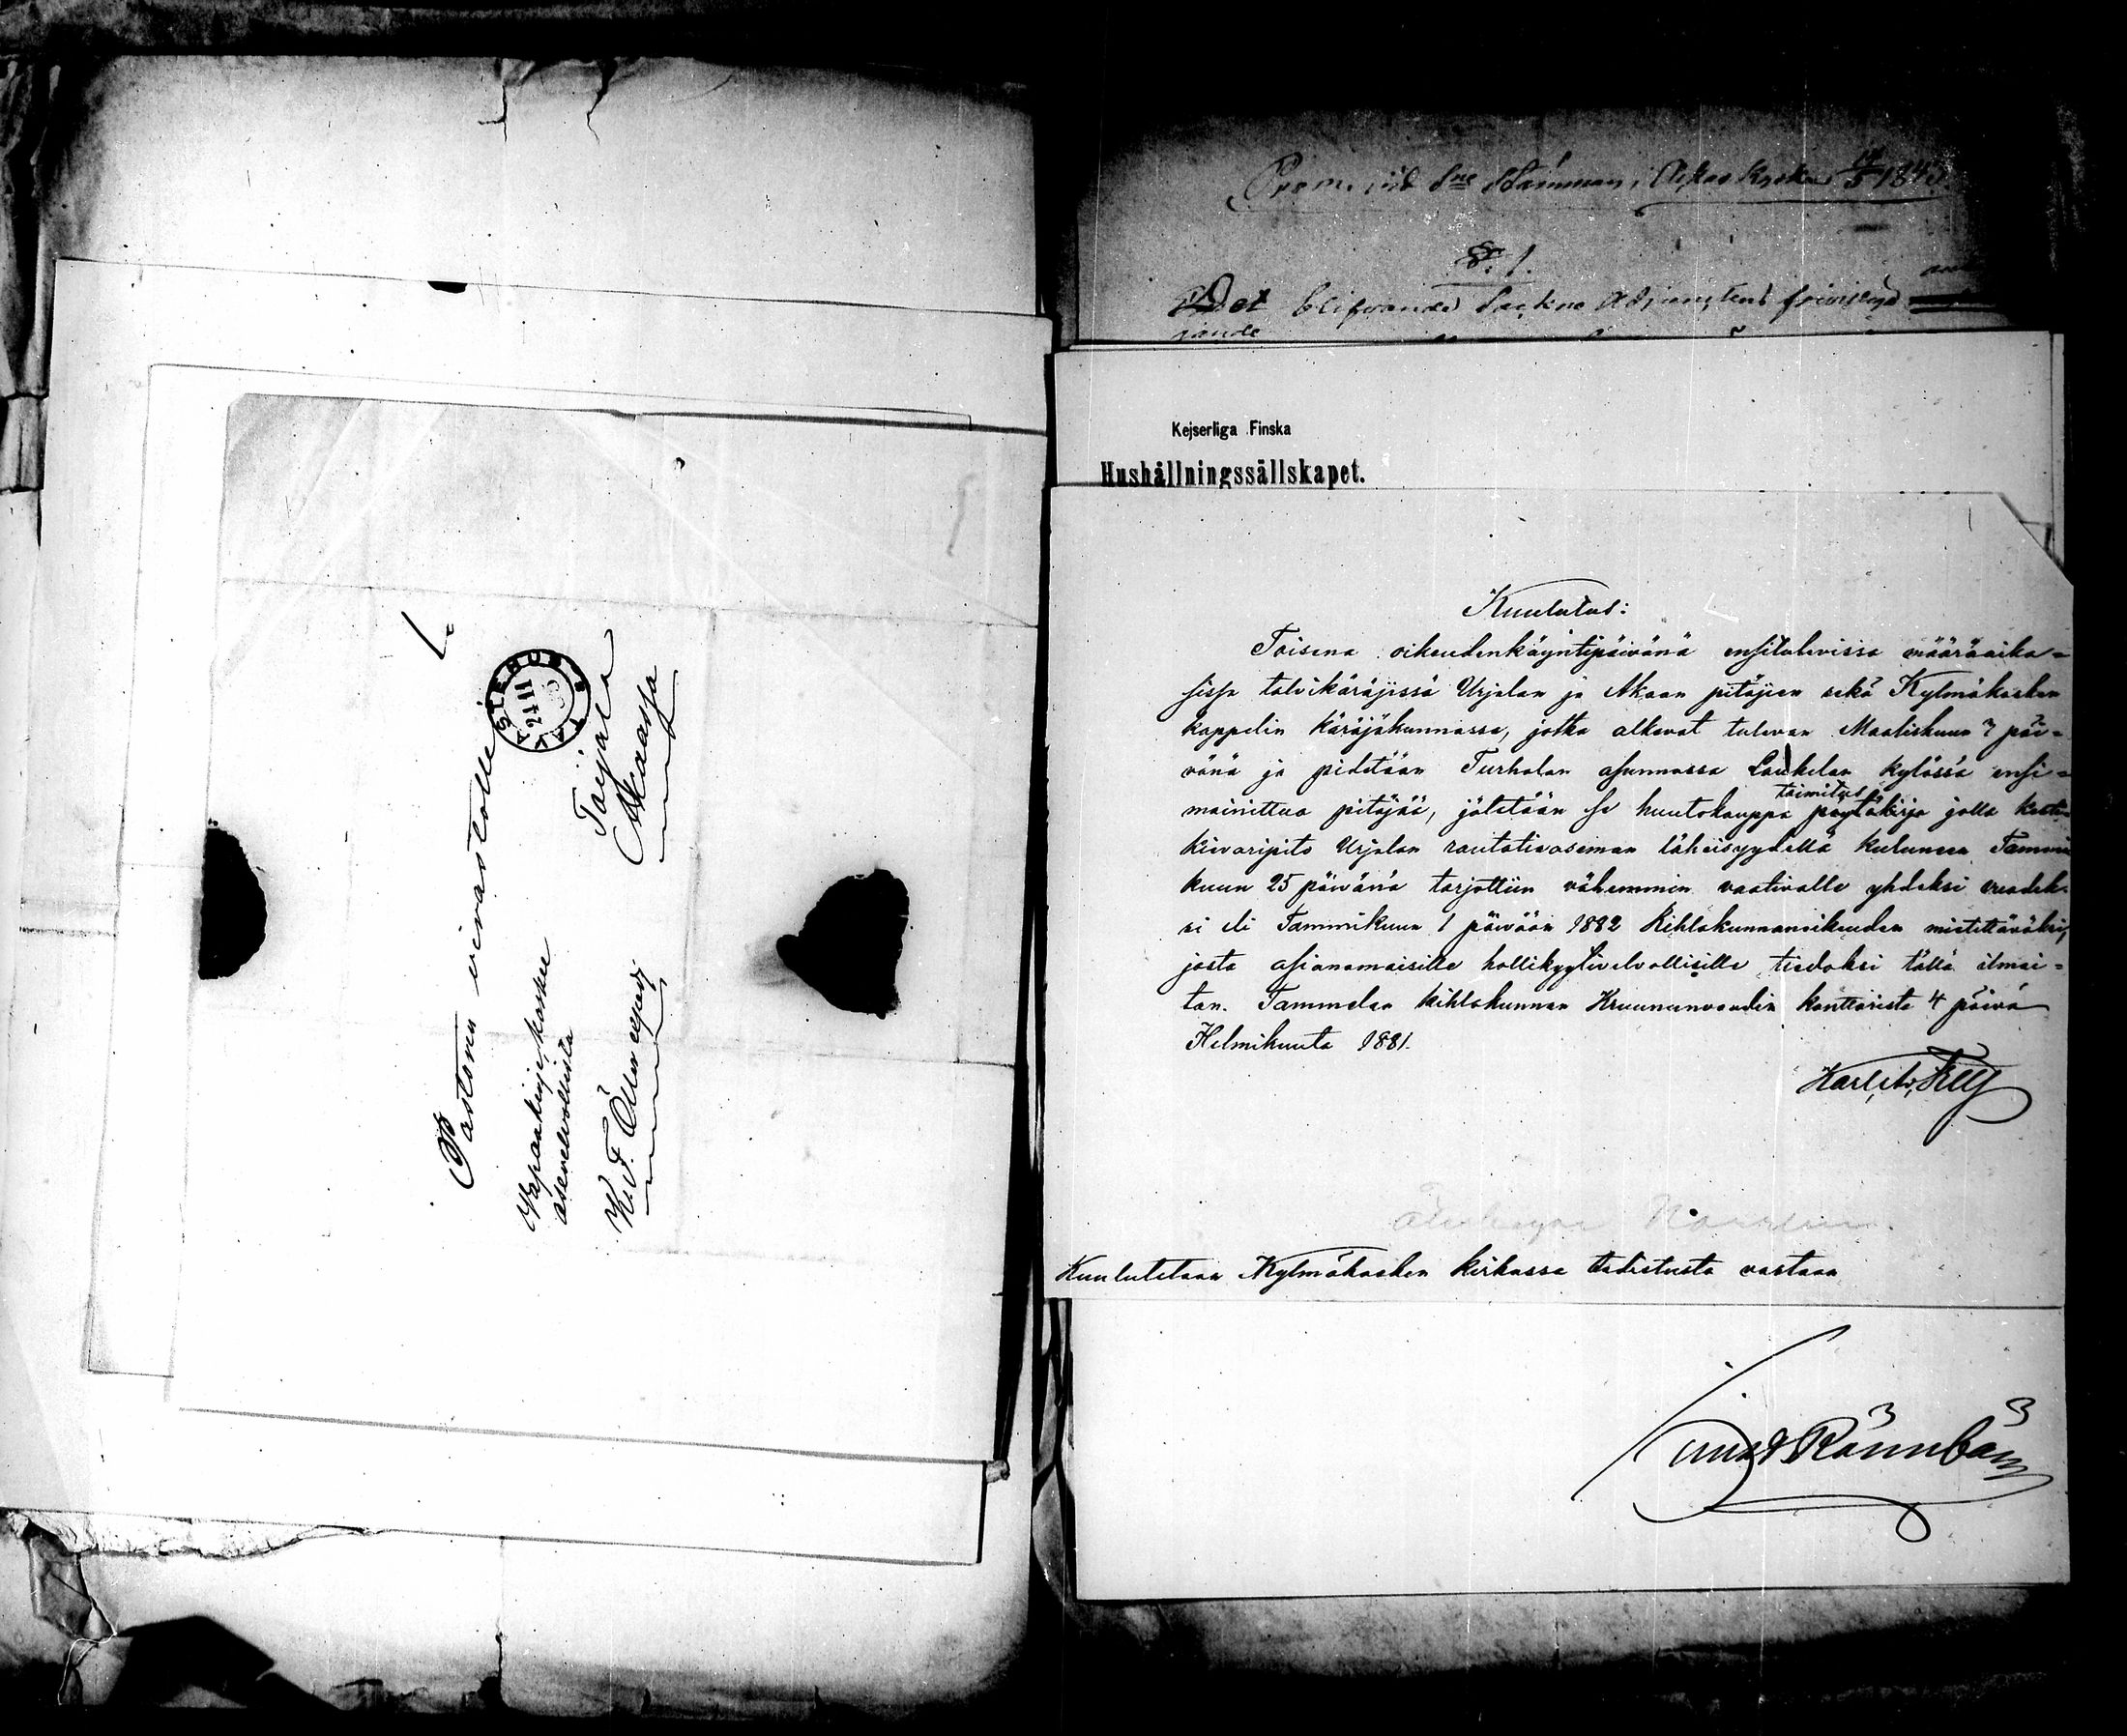 Pastorin virastolle
Toijala
Akaassa
Wapaakirje, koskee
asevelvollista
K. F.
TAVASTEHUS
Sne Stämman i Akas Kyrka 1845
§. 1.
Det blifvande Sockne Adjunctens
Kejserliga Finska
Hushållningssällskapet.
Kuulutus:
Toisena oikeudenkäyntipäivänä ensitulevissa määräaika=
sissa talvikäräjissä Urjalan ja Akaan pitäjien sekä Kylmäkosken
kappelin käräjäkunnassa, jotka alkavat tulevan Maaliskuun 3 päi=
vänä ja pidetään Turhalan asunnossa Laukelan kylässä ensi=
mainittua pitäjää, jätetään se huutokauppa toimitus pöytäkirja jolla kesti=
kievaripito Urjalan rautatieaseman läheisyydellä kuluneen Tammi
kuun 25 päivänä tarjottiin vähemmin vaativalle yhdeksi vuodek=
si eli Tammikuun 1 päivään 1882 Kihlakunnanoikeuden mietittäväksi,
josta asianomaisille hollikyytivelvollisille tiedoksi tällä ilmoi=
tan. Tammelan kihlakunnan Kruununvoudin konttorista 4 päivä
Helmikuuta 1881.
Kuulutetaan Kylmäkosken kirkossa todistusta vastaan